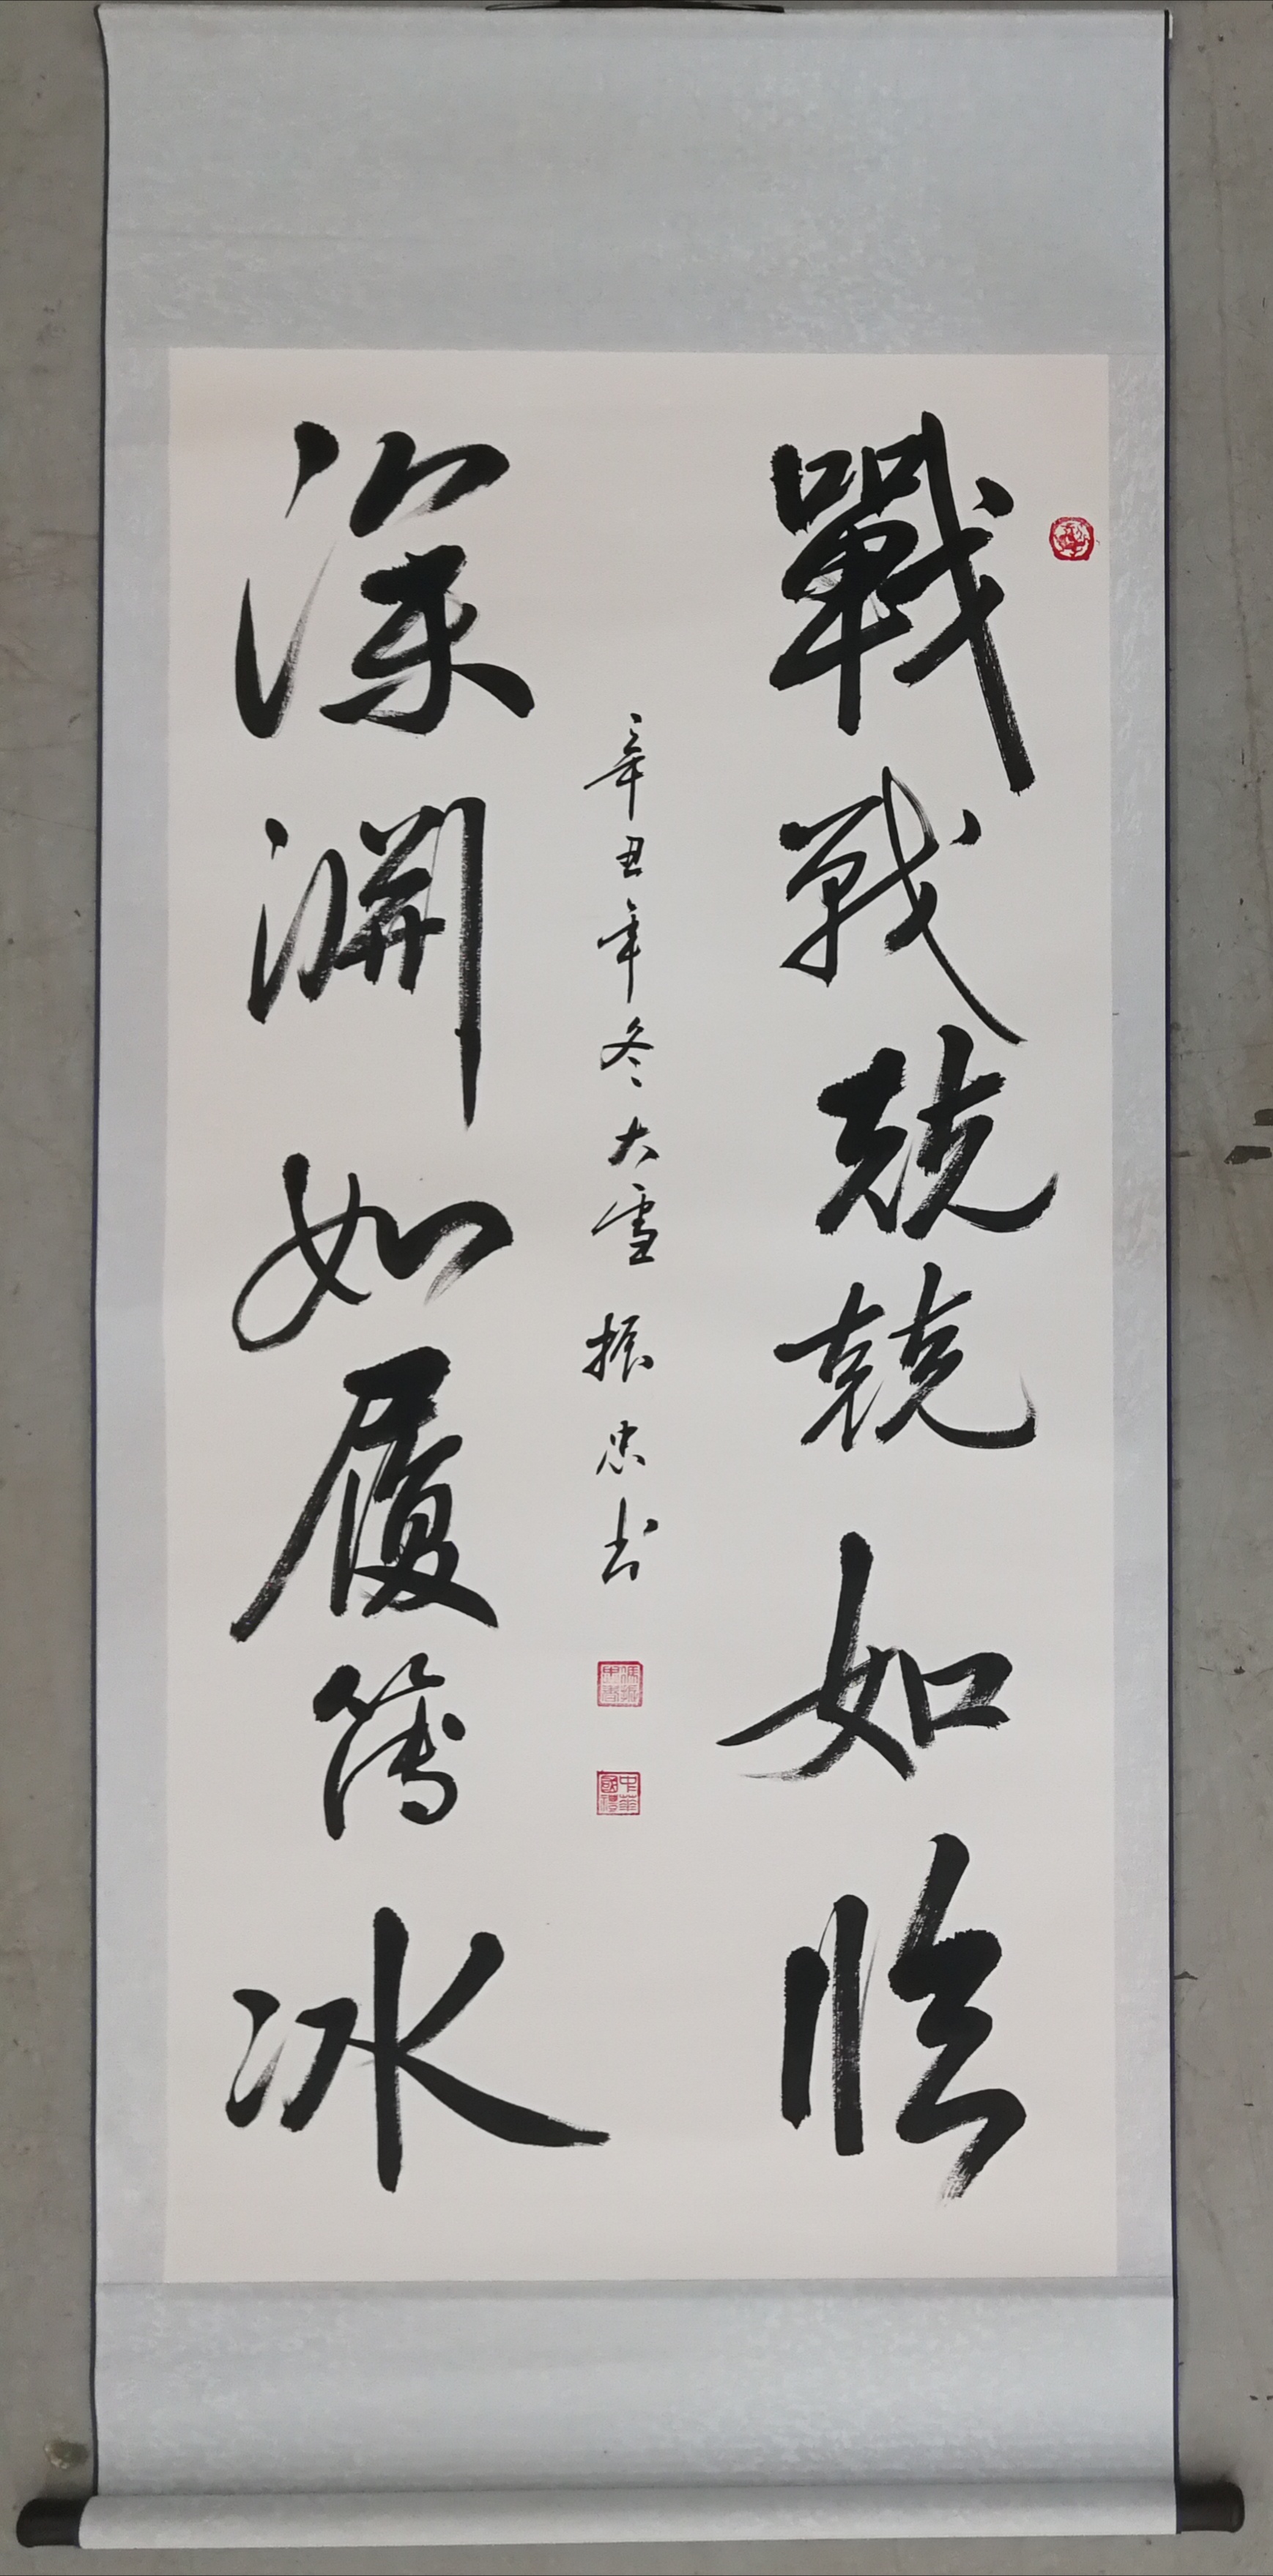 戰戰兢兢如臨
深淵如履薄冰
辛丑年冬大雪振忠书
中華國禮